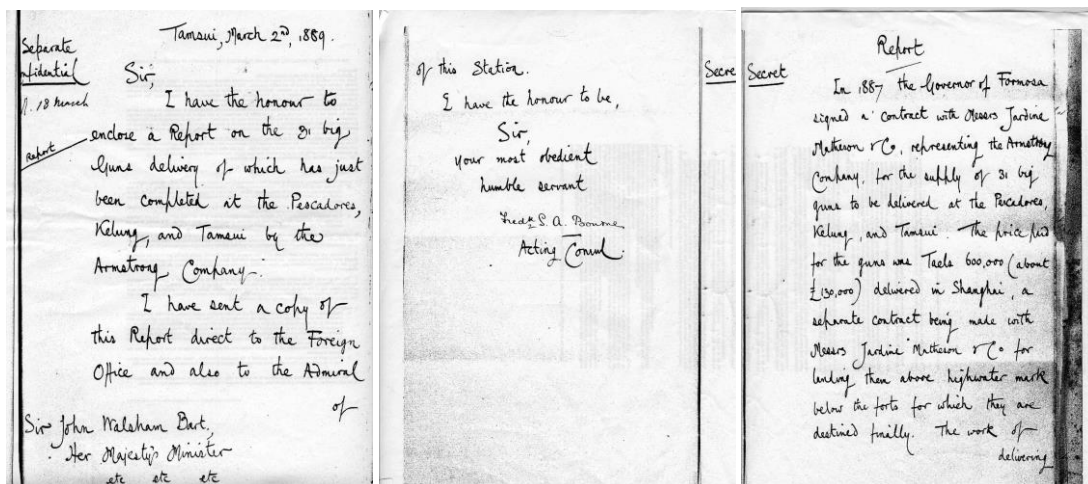 Tamsui, March 2nd, 1889.
Separate
nfidential
R. 18 March
Report
Sir,
I have the honour to
enclose a Report on the 31 big
Guns delivery of which has just
been completed at the Pescadores,
Kelung, and Tamsui by the
Armstrong Company.
I have sent a copy of
this Report direct to the Foreign
Office and also to the Admiral
of
Sir John Walsham Bart,
Her Majesty's Minister
etc etc etc
of this Station.
I have the honour to be,
Sir,
your most obedient
humble servant
Fredk S. A. Bourne
Acting Consul.
Secre
Secret
Report
In 1887 the Governor of Formosa
signed a contract with Messrs Jardine
Matheson & Co, representing the Armstrong
Company, for the supply of 31 big
guns to be delivered at the Pescadores,
Kelung, and Tamsui. The price paid
for the guns was Taels 600,000 (about
£130,000) delivered in Shanghai, a
separate contract being made with
Messrs Jardine Matheson & Co for
landing them above highwater mark
below the forts for which they are
destined finally. The work of
delivering